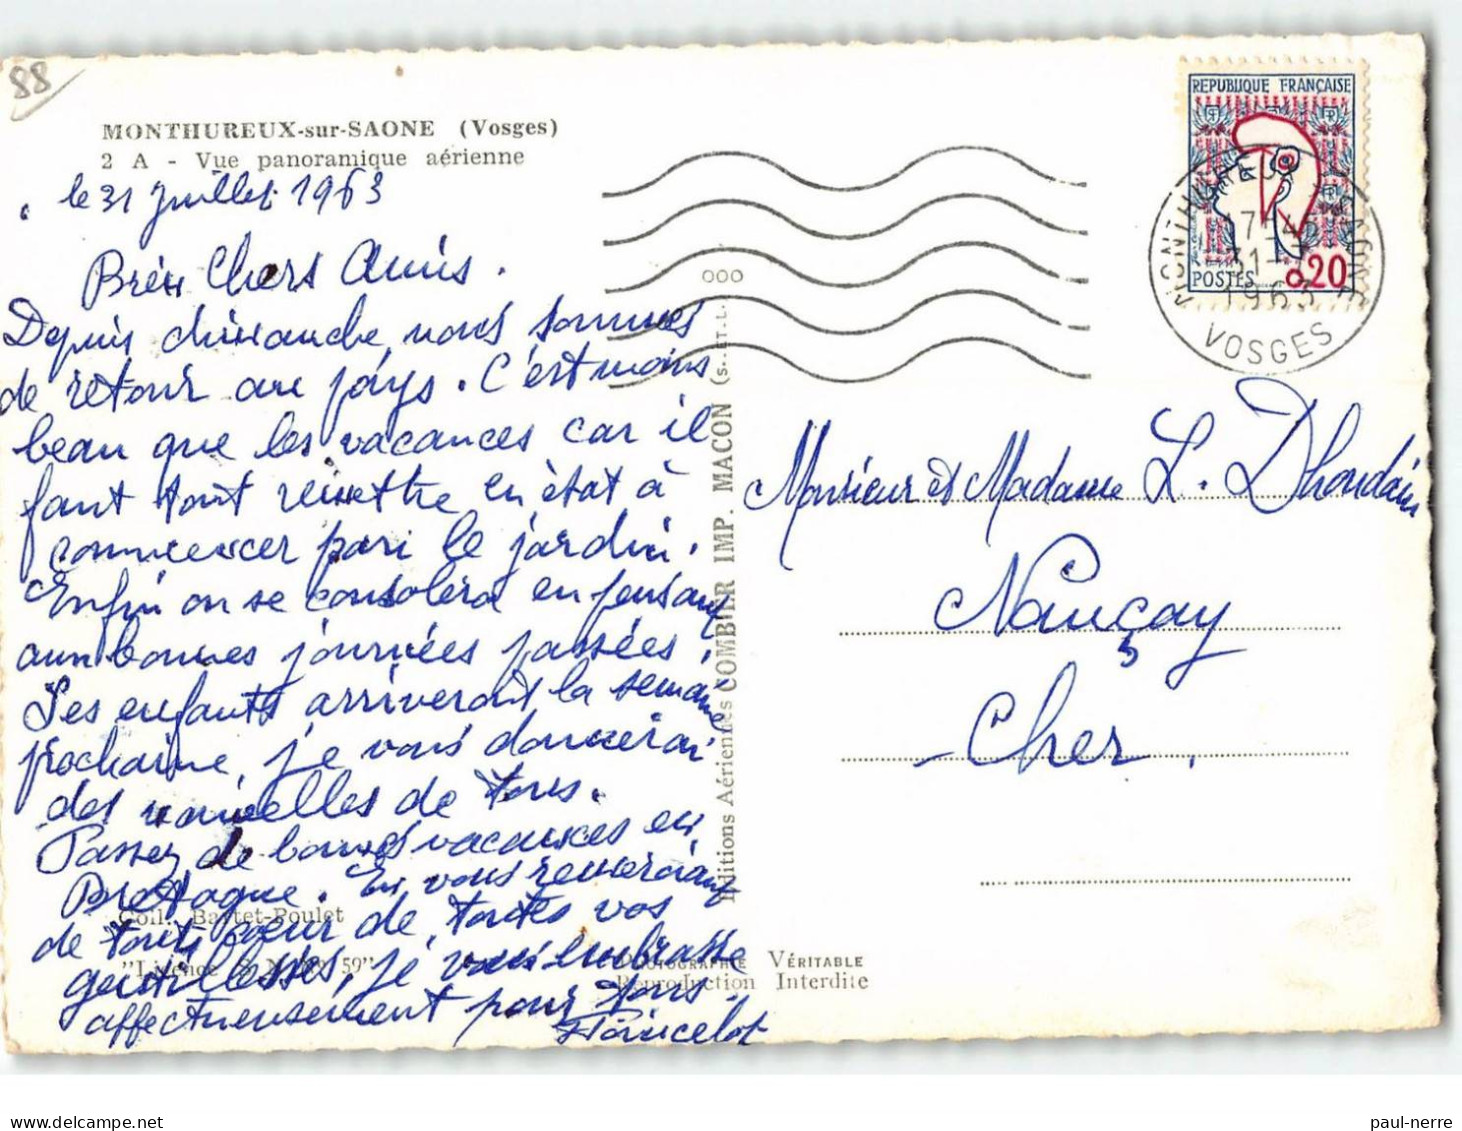 88
MONTHUREUX-sur-SAONE (Vosges)
2 A - Vue panoramique aérienne
le 31 Juillet 1963
Bien Chers Amis.
Depuis dimanche nous sommes
de retour au pays. C'est moins
beau que les vacances car il
faut tout remettre en état à
commencer par le jardin.
Enfin on se consolera en pensant
aux bonnes journées passées.
Les enfants arriveront la semaine
prochaine, je vous donnerai
des nouvelles de tous.
Passez de bonnes vacances en
Bretagne. En vous remerciant
de tout cœur de toutes vos
gentillesses, je vous embrasse
affectueusement pour tous.
Coll. Bastet-Poulet
"Licence 59"
Editions Aériennes COMBIER IMP. MACON (S.-ET-L.)
PHOTOGRAPHIE VÉRITABLE
Reproduction Interdite
000
REPUBLIQUE FRANÇAISE
POSTES 0,20
MONTHUREUX SUR SAONE
17-45
31-7
1963
VOSGES
Monsieur et Madame L. Dhoudain
Nançay
Cher.
paul-nerre